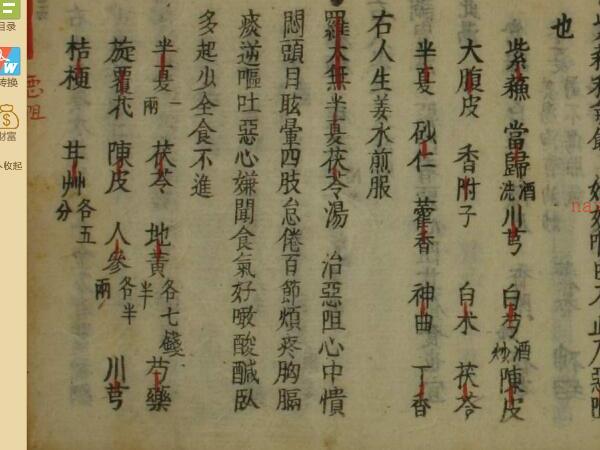 也
紫蘓 當歸酒洗 川芎 白芍酒炒 陳皮
大腹皮 香附子 白术 茯苓
半夏 砂仁 藿香 神曲 丁香
右入生姜水煎服
羅太無半夏茯苓湯 治惡阻心中憒
悶頭目眩暈四肢怠倦百節煩疼胸膈
痰逆嘔吐惡心嫌聞食氣好噉酸鹹臥
多起少全食不進
半夏一兩 茯苓 地黃各七錢半 芍藥
旋覆花 陳皮 人參各半兩 川芎
桔梗 甘艸各五分
惡阻
目录
转换
财富
收起